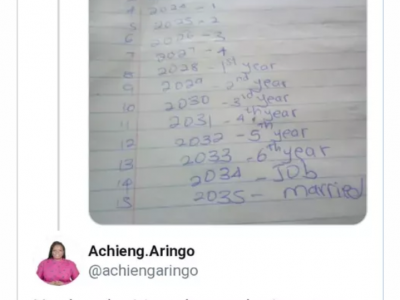 4 2024 - 1
5 2025 - 2
6 2026 - 3
7 2027 - 4
8 2028 - 1st year
9 2029 - 2nd year
10 2030 - 3rd year
11 2031 - 4th year
12 2032 - 5th year
13 2033 - 6th year
14 2034 - Job
15 2035 - married
Achieng.Aringo
@achiengaringo